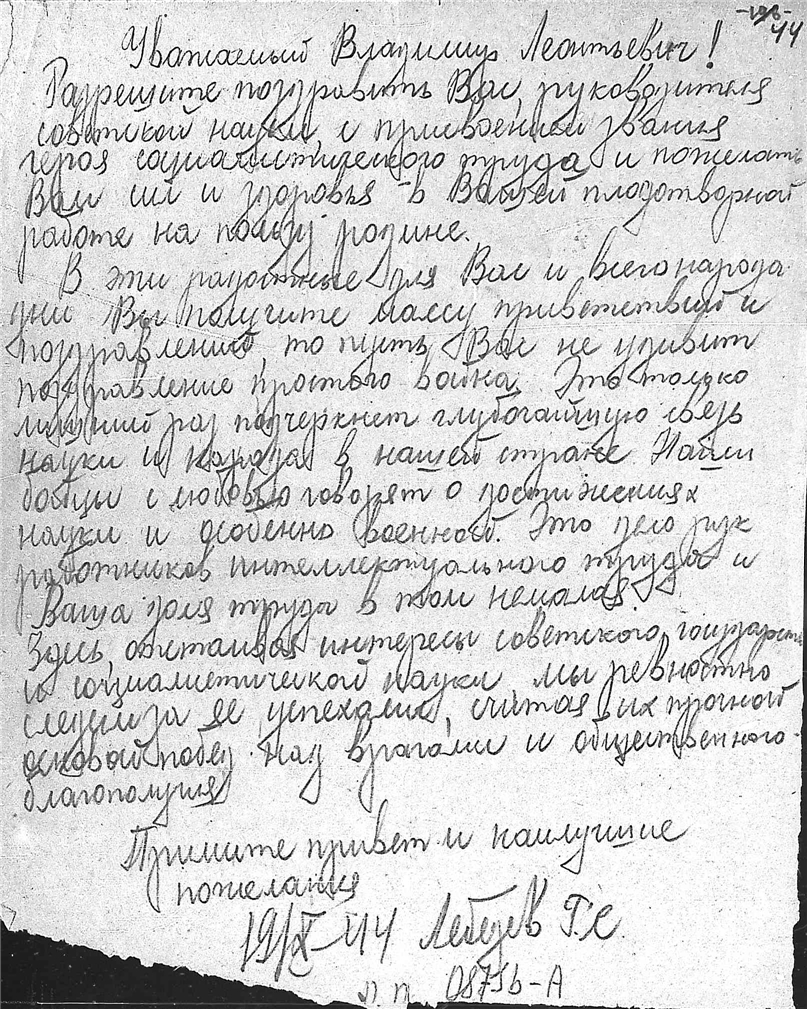 44
Уважаемый Владимир Леонтьевич!
Разрешите поздравить Вас, руководителя
советской науки, с присвоением звания
героя социалистического труда и пожелать
Вам сил и здоровья в Вашей плодотворной
работе на пользу родине.
В эти радостные для Вас и всего народа
дни Вы получите массу приветствий и
поздравлений, то пусть Вас не удивит
поздравление простого война. Это только
лишний раз подчеркнет глубочайшую связь
науки и народа в нашей стране. Наши
бойцы с любовью говорят о достижениях
науки и особенно военной. Это дело рук
работников интеллектуального труда и
Ваша доля труда в том немалая.
Здесь, отстаивая интересы советского государства
и социалистической науки мы ревностно
следим за ее успехами, считая их прочной
основой побед над врагами и общественного
благополучия
Примите привет и наилучшие
пожелания
19/X-44 Лебедев Г.С.
П. П. 08756-А